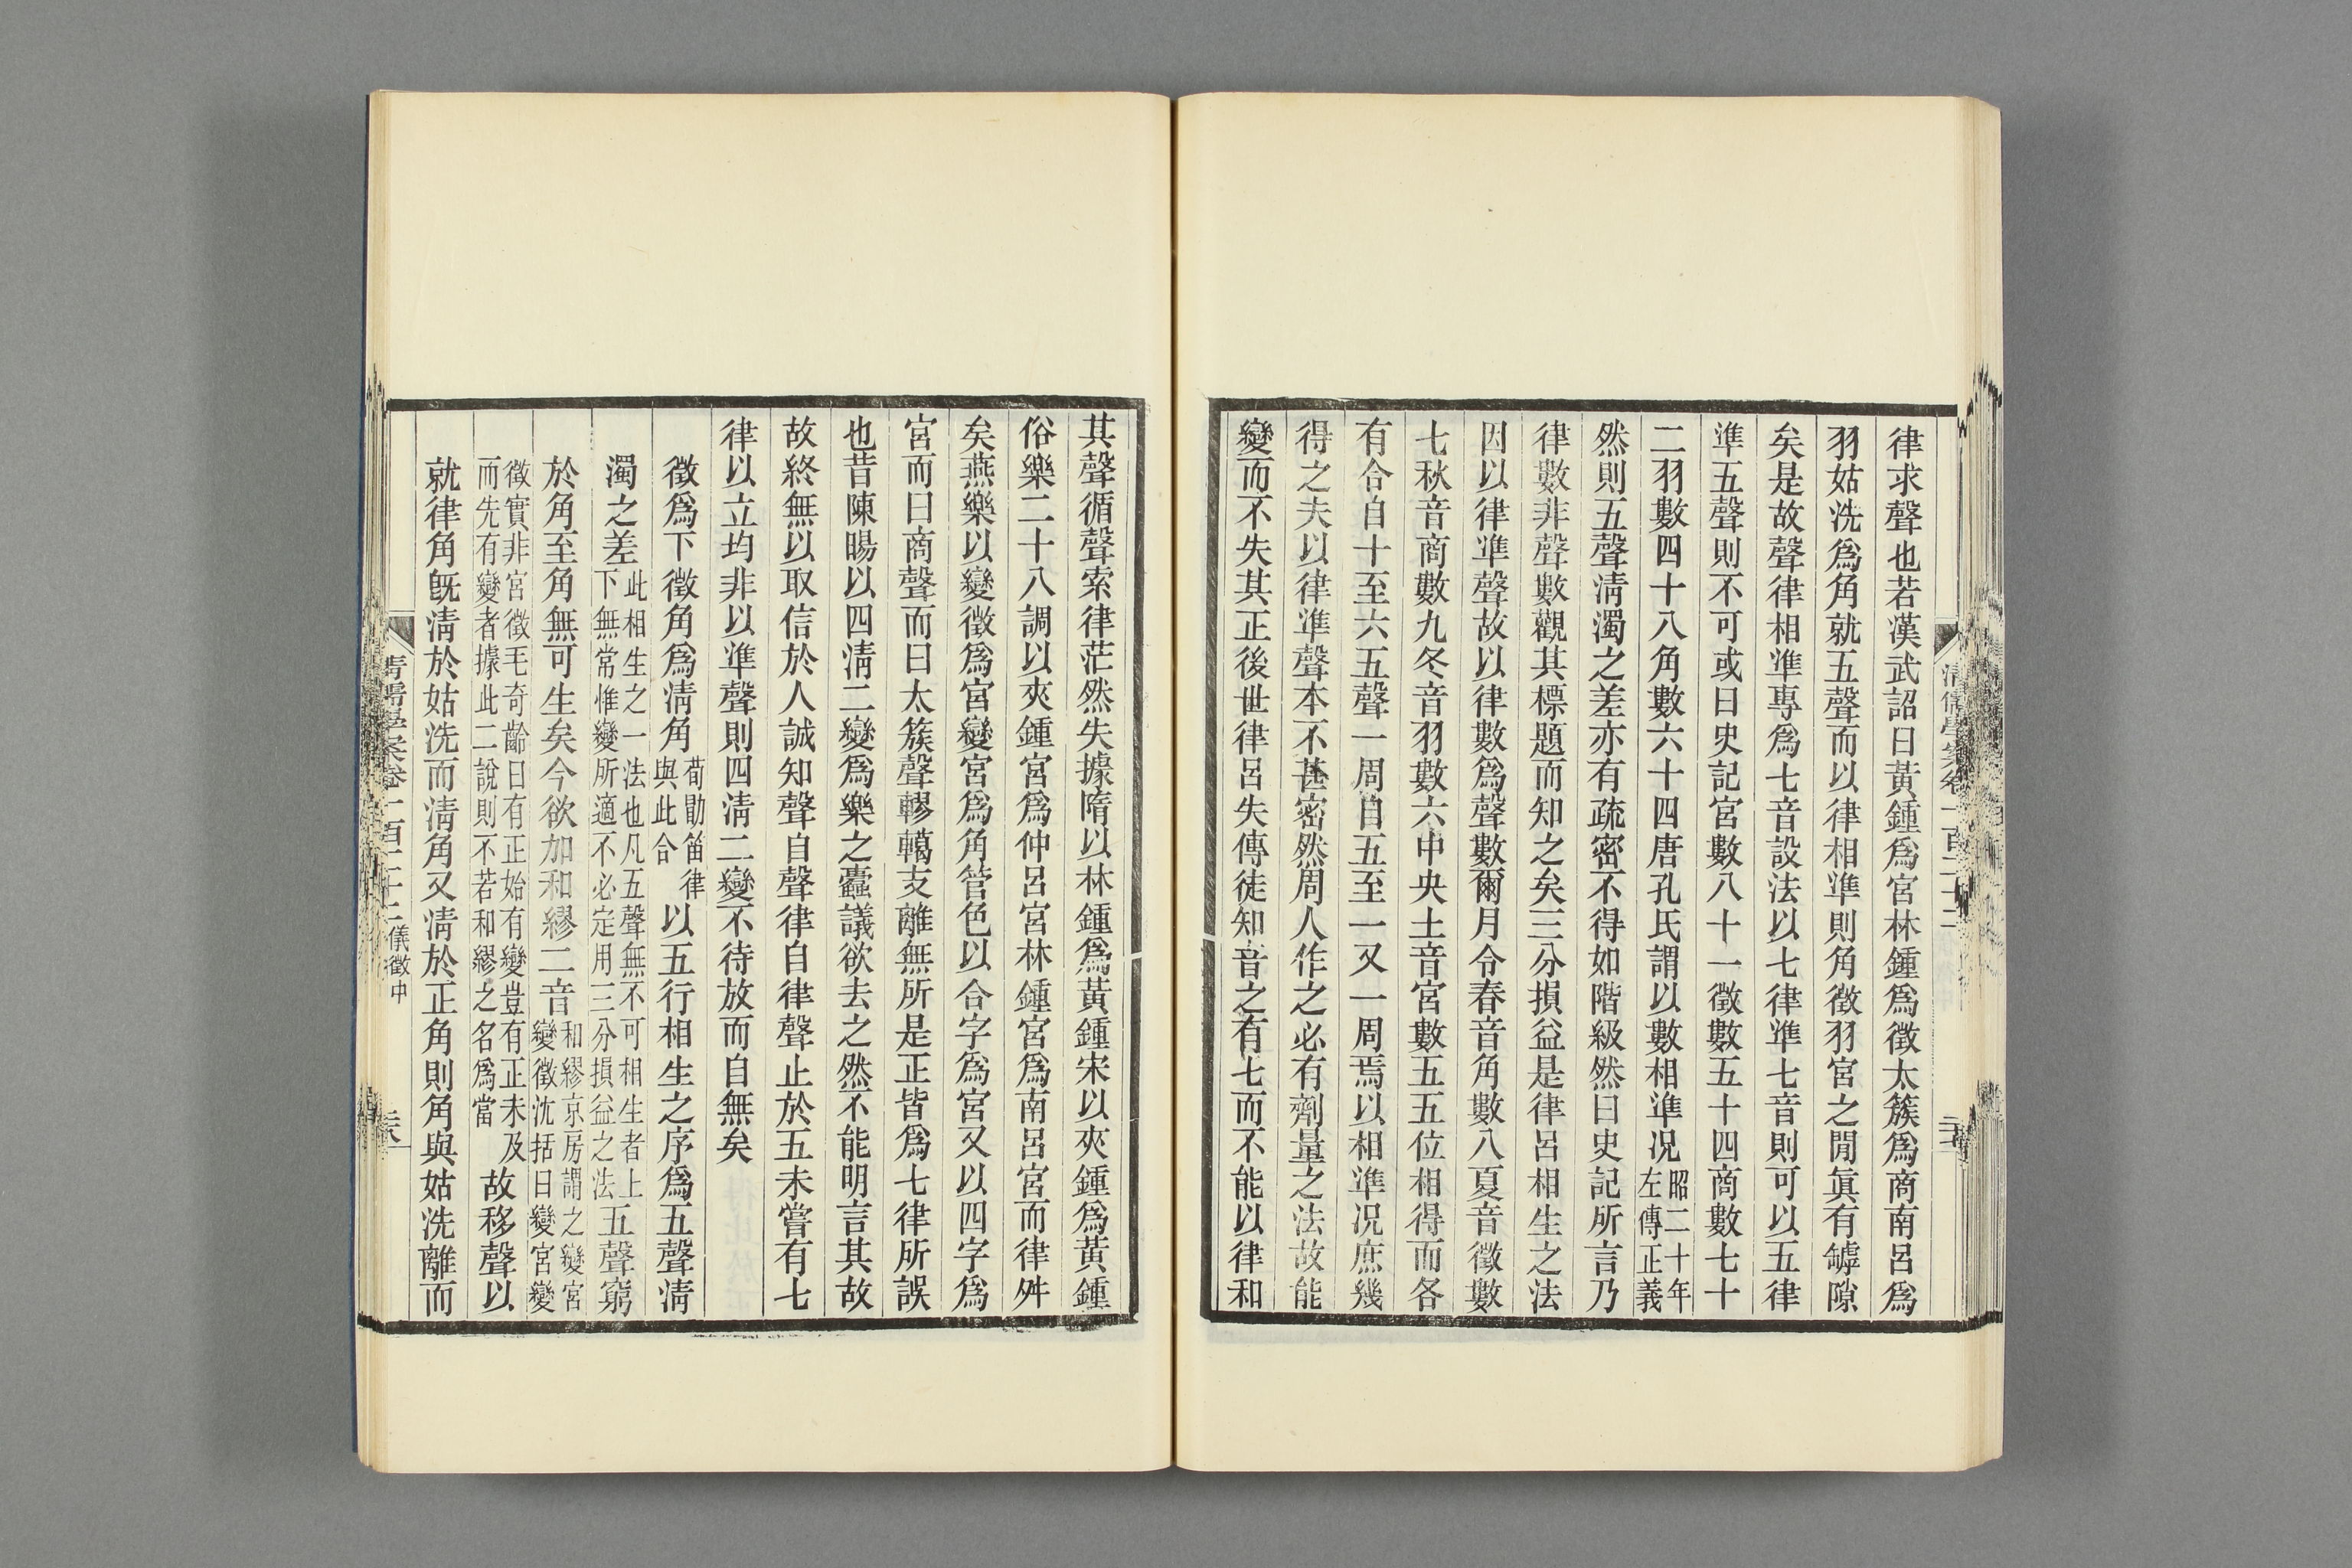 律求聲也若漢武詔曰黃鍾爲宮林鍾爲徵太簇爲商南呂爲
羽姑洗爲角就五聲而以律相準則角徵羽宮之閒眞有罅隙
矣是故聲律相準專爲七音設法以七律準七音則可以五律
準五聲則不可或曰史記宮數八十一徵數五十四商數七十
二羽數四十八角數六十四唐孔氏謂以數相準况昭二十年左傳正義
然則五聲淸濁之差亦有疏密不得如階級然曰史記所言乃
律數非聲數觀其標題而知之矣三分損益是律呂相生之法
因以律準聲故以律數爲聲數爾月令春音角數八夏音徵數
七秋音商數九冬音羽數六中央土音宮數五五位相得而各
有合自十至六五聲一周自五至一又一周焉以相準况庶幾
得之夫以律準聲本不甚密然周人作之必有劑量之法故能
變而不失其正後世律呂失傳徒知音之有七而不能以律和
其聲循聲索律茫然失據隋以林鍾爲黃鍾宋以夾鍾爲黃鍾
俗樂二十八調以夾鍾宮爲仲呂宮林鍾宮爲南呂宮而律舛
矣燕樂以變徵爲宮變宮爲角管色以合字爲宮又以四字爲
宮而曰商聲而曰太簇聲轇轕支離無所是正皆爲七律所誤
也昔陳暘以四淸二變爲樂之蠹議欲去之然不能明言其故
故終無以取信於人誠知聲自聲律自律聲止於五未嘗有七
律以立均非以準聲則四淸二變不待放而自無矣
徵爲下徵角爲淸角荀勖笛律與此合以五行相生之序爲五聲淸
濁之差此相生之一法也凡五聲無不可相生者上下無常惟變所適不必定用三分損益之法五聲窮
於角至角無可生矣今欲加和繆二音和繆京房謂之變宮變徵沈括曰變宮變
徵實非宮徵毛奇齡曰有正始有變豈有正未及而先有變者據此二說則不若和繆之名爲當故移聲以
就律角旣淸於姑洗而淸角又淸於正角則角與姑洗離而
淸儒學案卷一百二十二儀徵中